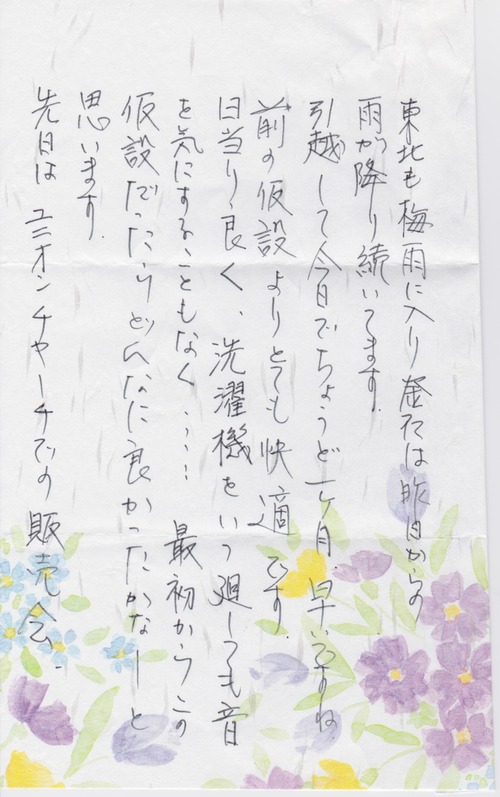 東北も梅雨に入り釜石は昨日からの
雨が降り続いてます.
引越して今日でちょうど一ヶ月.早いですね
前の仮設よりとても快適です.
日当り良く、洗濯機をいつ廻しても音
を気にすることもなく、、… 最初からこの
仮設だったらどんなに良かったかなーと
思います.
先日は ユニオンチャーチでの 販売会.